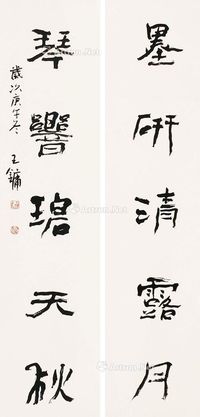 墨研清露月
琴響碧天秋
歲次庚午冬
王鏞